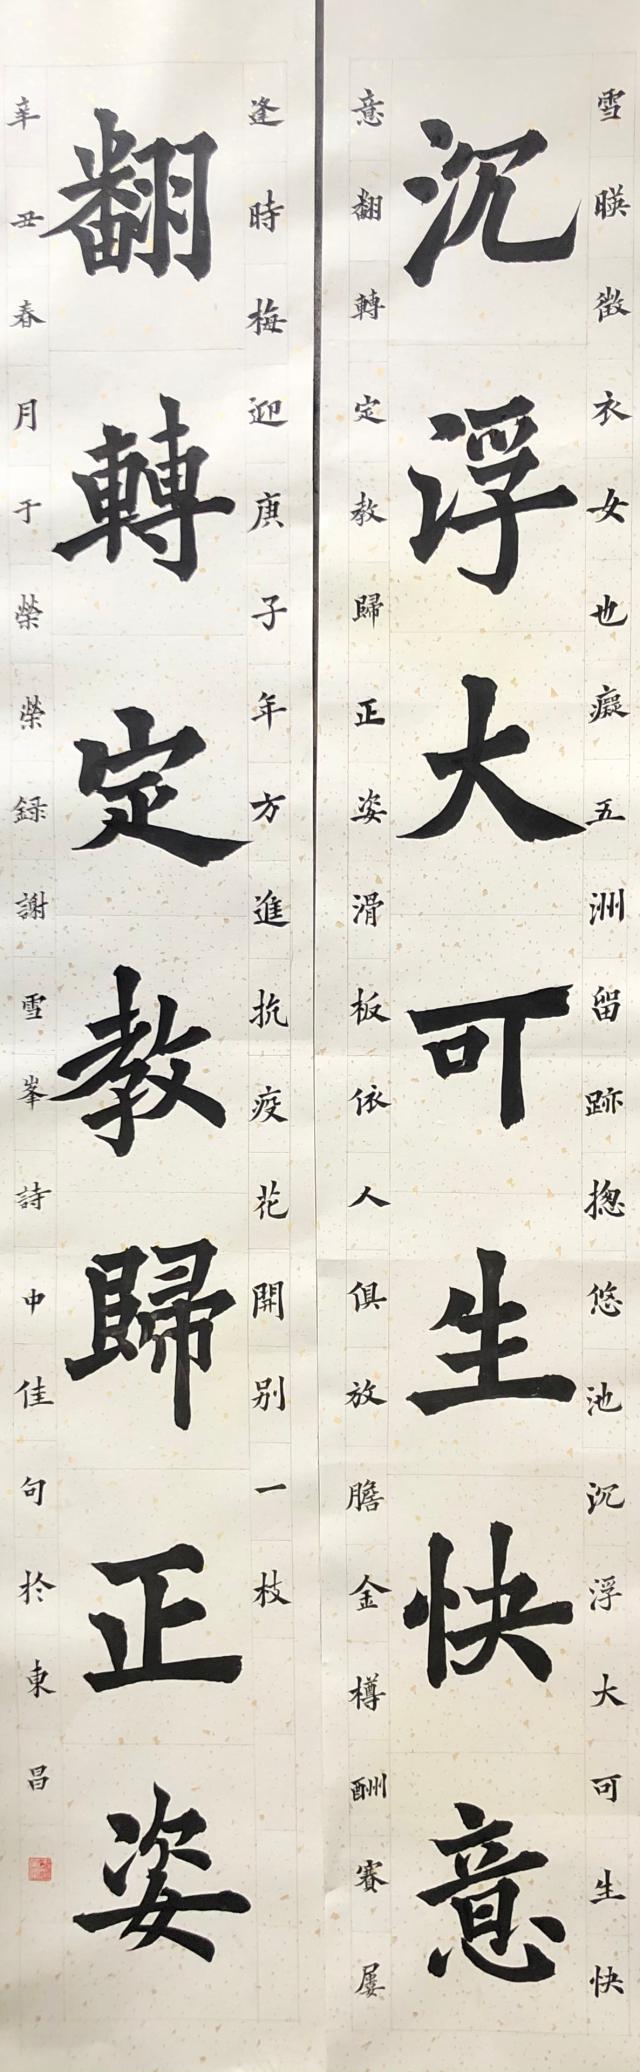 雪暎徵衣女也癡五洲留跡揔悠池沉浮大可生快
沉浮大可生快意
意翻轉定教歸正姿滑板依人俱放膽金樽酬賽屢
逢時梅迎庚子年方進抗疫花開别一枝
翻轉定教歸正姿
辛丑春月于榮榮録謝雪峯詩中佳句扵東昌